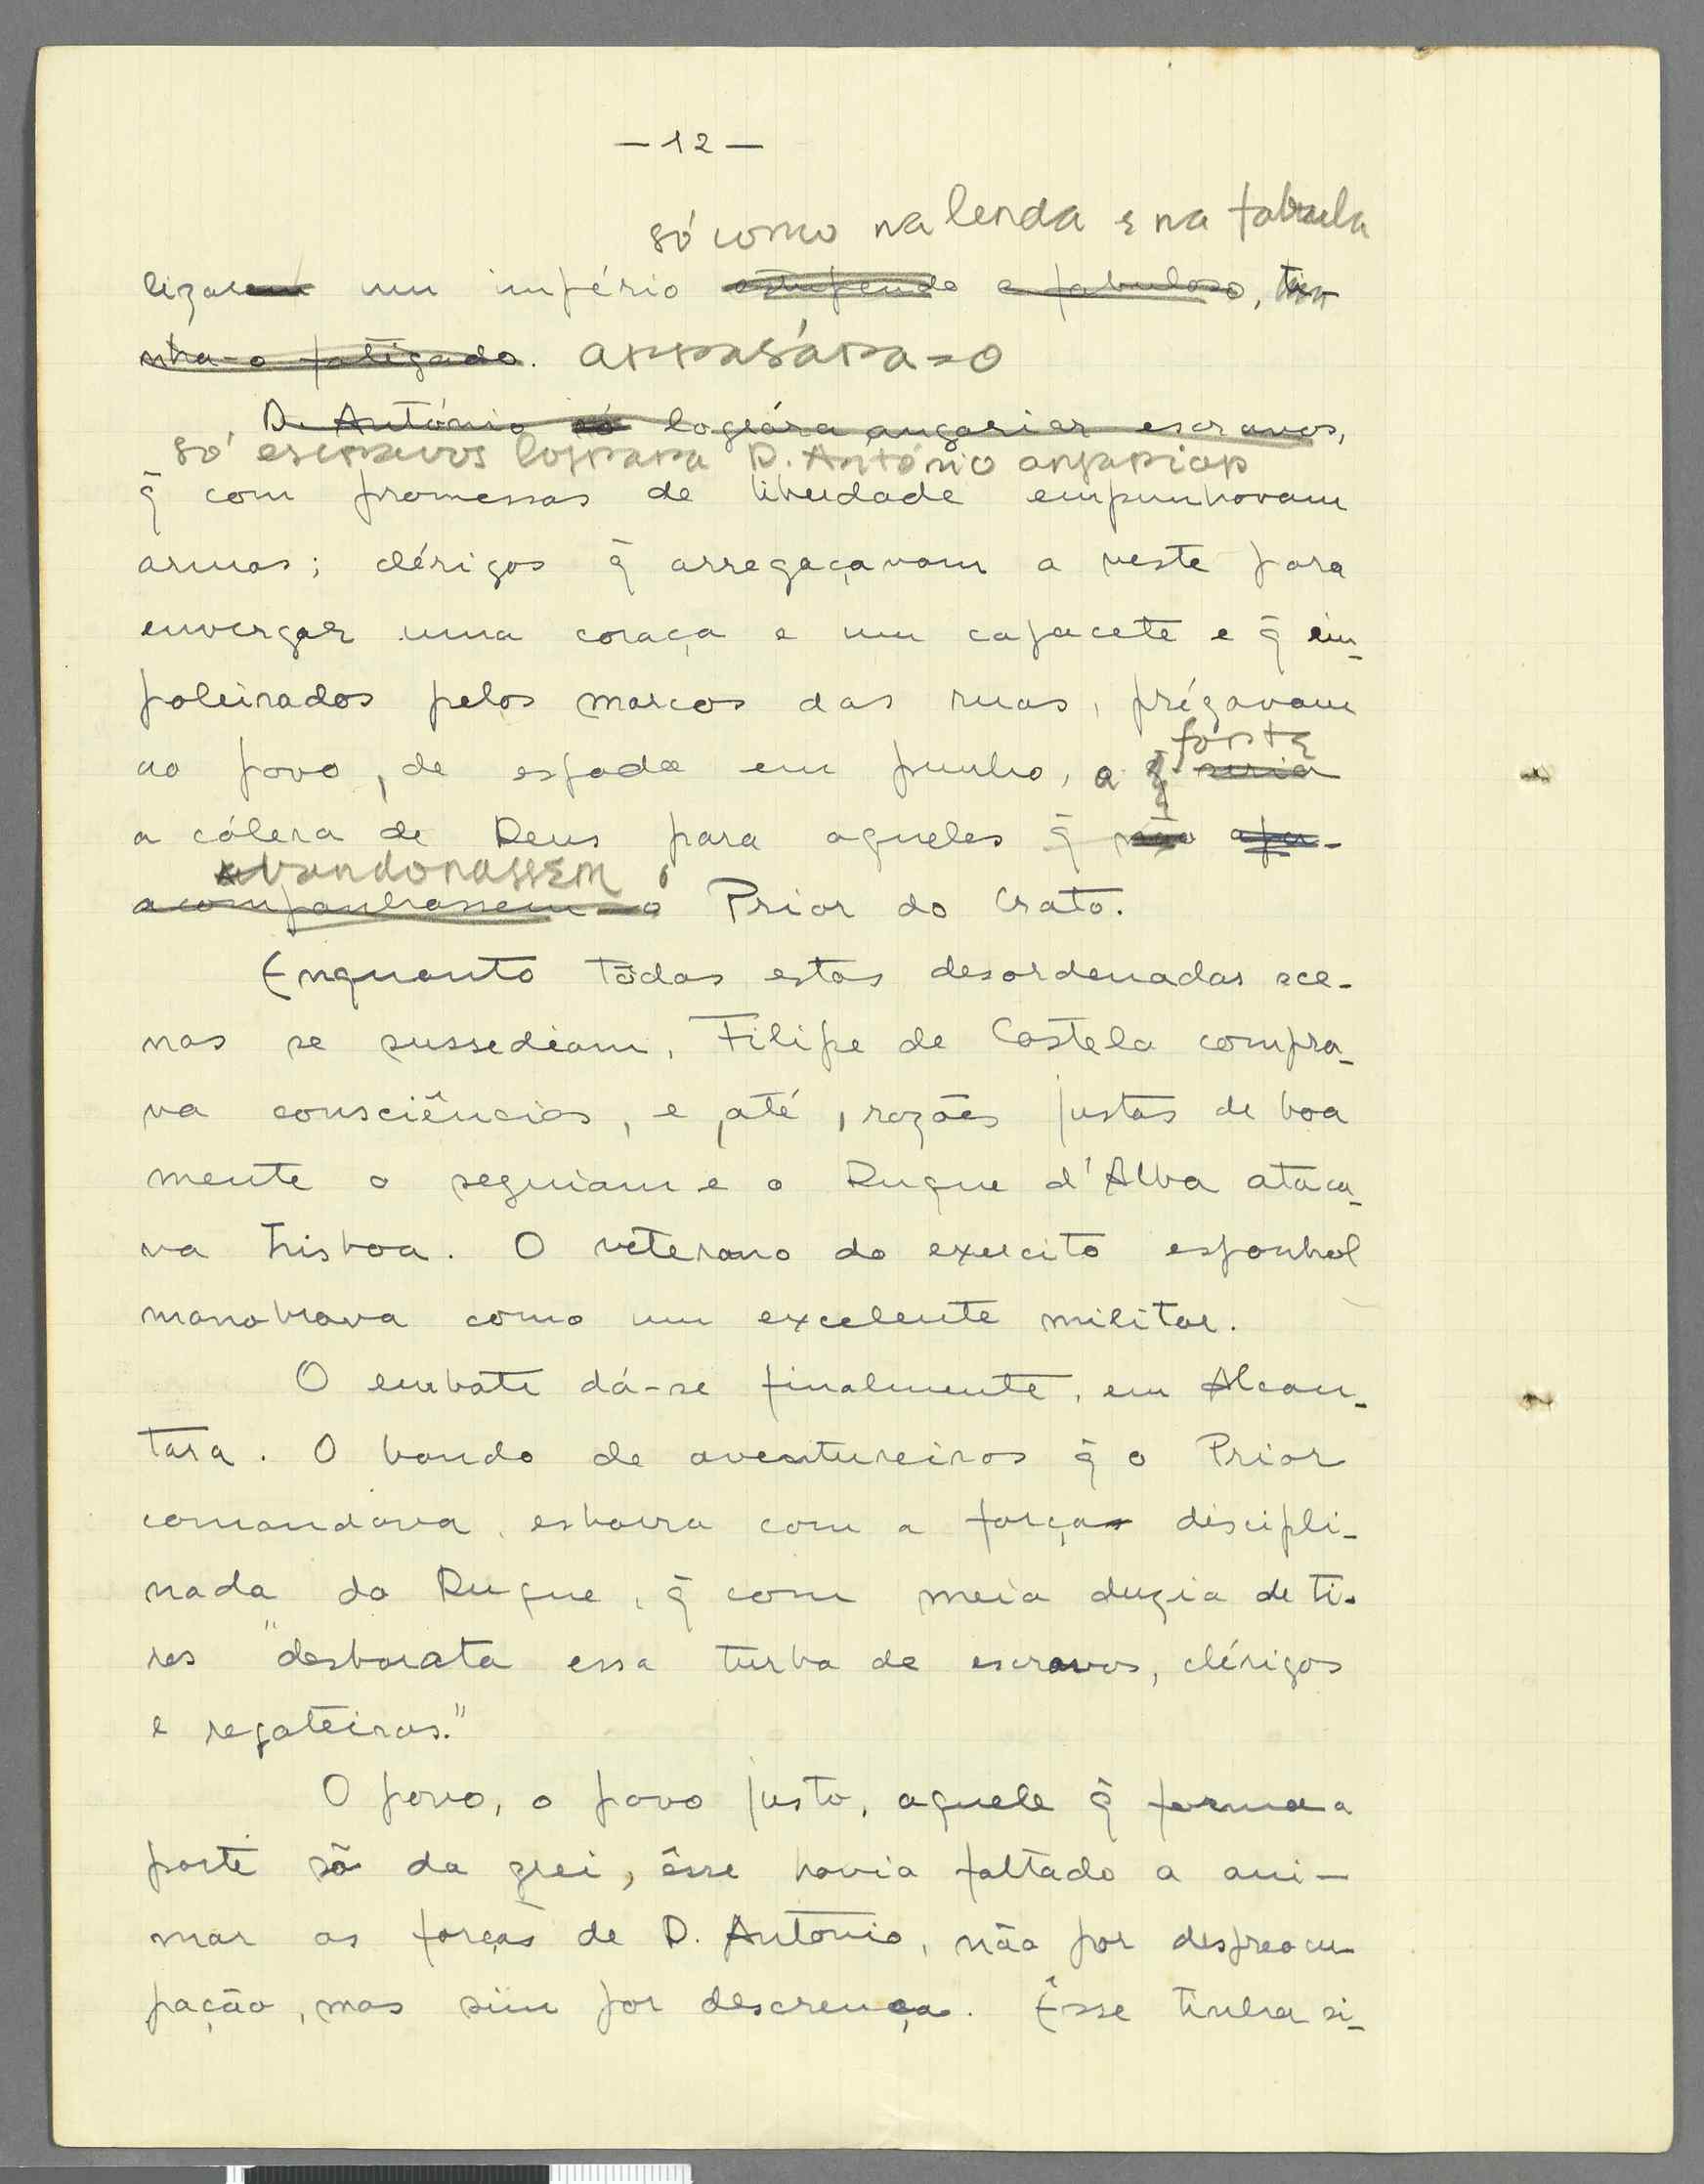 — 12 —
só como na lenda e na fabula
lizarem um império estupendo e fabuloso, ti-
nha-o fatigado. arrasára-o
D. António só lográra angariar escravos,
só escravos lograra D. António angariar
q̃ com promessas de liberdade empunhavam
armas; clérigos q̃ arregaçavam a veste para
envergar uma coraça e um capacete e q̃ em-
poleirados pelos marcos das ruas, prégavam
fôsse
ao povo, de espada em punho, a q̃ seria
a cólera de Deus para aqueles q̃ não
abandonassem o
acompanhassem o Prior do Crato.
Enquanto tôdas estas desordenadas sce-
nas se sussediam, Filipe de Castela compra-
va consciências, e, até, razões justas de boa
mente o seguiam e o Duque d'Alba ataca-
va Lisboa. O veterano do exercito espanhol
manobrava como um excelente militar.
O embate dá-se finalmente, em Alcan-
tara. O bando de aventureiros q̃ o Prior
comandava, esbarra com a força discipli-
nada do Duque, q̃ com meia duzia de ti-
ros "desbarata essa turba de escravos, clérigos
e regateiras."
O povo, o povo justo, aquele q̃ forma a
parte sã da grei, êsse havia faltado a ani-
mar as forças de D. António, não por despreocu-
pação, mas sim por descrença. Êsse tinha si-